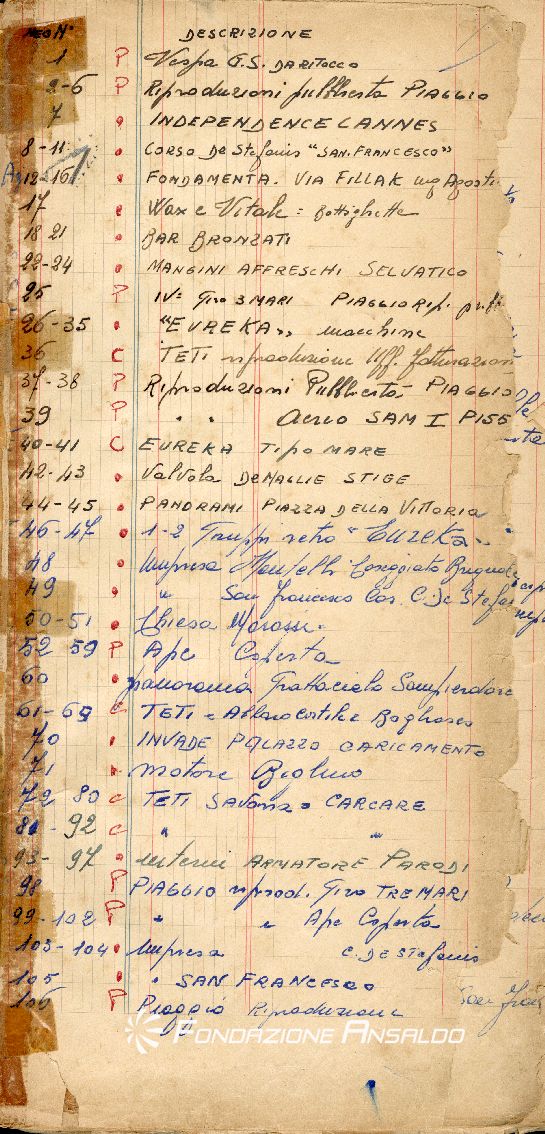 NEG N° DESCRIZIONE
1 P Vespa G.S. DARITOCCO
2-6 P Riproduzioni pubblicità PIAGGIO
7 INDEPENDENCE CANNES
8-11 CORSO De Stefanis "SAN. FRANCESCO"
12-16 FONDAMENTA. VIA FILLAK ing
17 Wax e Vitale = Bottigliette
18 21 BAR BRONZATI
22-24 MANGINI AFFRESCHI SELVATICO
25 P IV= Giro 3 MARI PIAGGIO Rip.
26-35 "EUREKA" macchine
36 C TETI riproduzione Uff. fatturazion
37-38 P Riproduzioni Pubblicità PIAGGIO
39 P " " Aereo SAM I P155
40-41 C EUREKA TIPO MARE
42-43 Valvola DeMAGLIE STIGE
44-45 PANORAMI PIAZZA DELLA VITTORIA
46-47 1-2 Gruppi retro "Eureka"
48 Impresa
49 " San Francesco Cos. C. De Stefan
50-51 Chiesa
52-59 P Ape Coperta
60 panorama Grattacielo Sampierdare
61-69 C TETI
70 INVADE PALAZZO CARICAMENTO
71 motore
72 80 C TETI SAVONA CARCARE
81-92 C " "
93-97 interni ARMATORE PARODI
98 P PIAGGIO riprod. Giro TRE MARI
99-102 P " " Ape Coperta
103-104 Impresa C. DE Stefanis
105 " SAN FRANCESCO
106 P Piaggio Riproduzione
FONDAZIONE ANSALDO